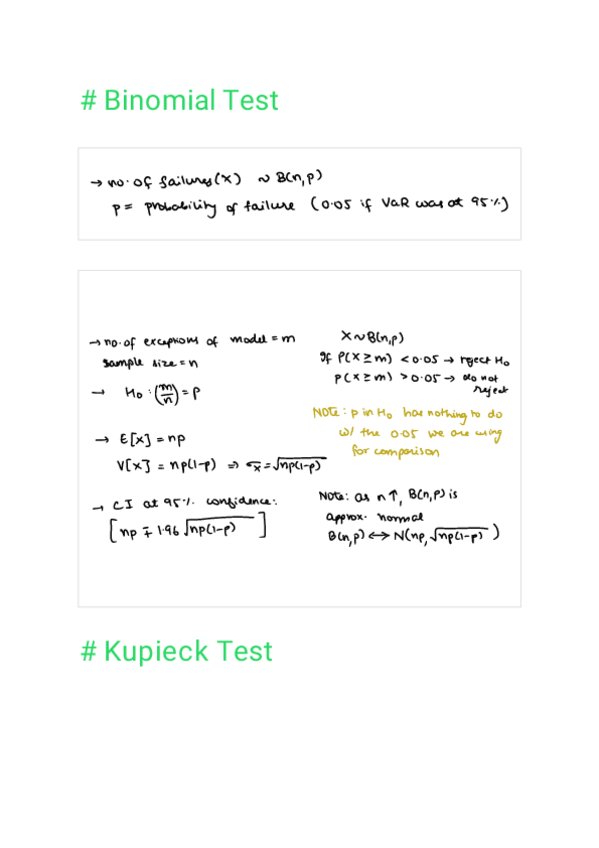 # Binomial Test
→ no. of failures(X) ~ B(n,p)
p = probability of failure (0.05 if VaR was at 95%)
→ no. of exceptions of model = m
sample size = n
→ H₀ : (m/n) = p
→ E[x] = np
V[x] = np(1-p) ⇒ σₓ = √np(1-p)
→ CI at 95% confidence:
[np ∓ 1.96 √np(1-p)]
X ~ B(n,p)
If P(X ≥ m) < 0.05 → reject H₀
P(X ≥ m) > 0.05 → do not
reject
NOTE: p in H₀ has nothing to do
w/ the 0.05 we are using
for comparison
Note: as n↑, B(n,p) is
approx. normal
B(n,p) ↔ N(np, √np(1-p))
# Kupieck Test